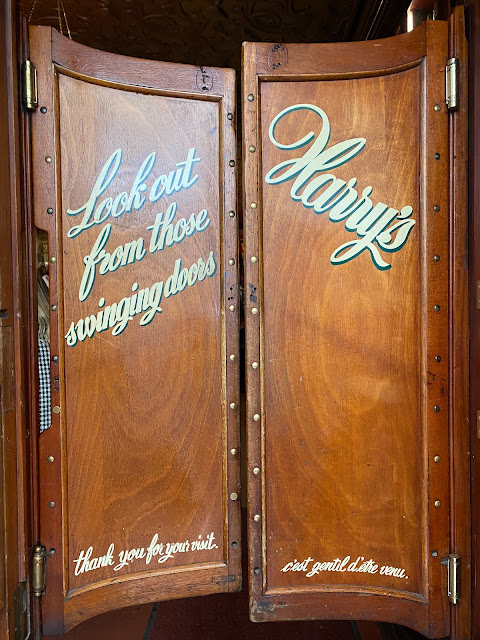 Look out
from those
swinging doors
thank you for your visit.
Harry's
c'est gentil d'être venu.